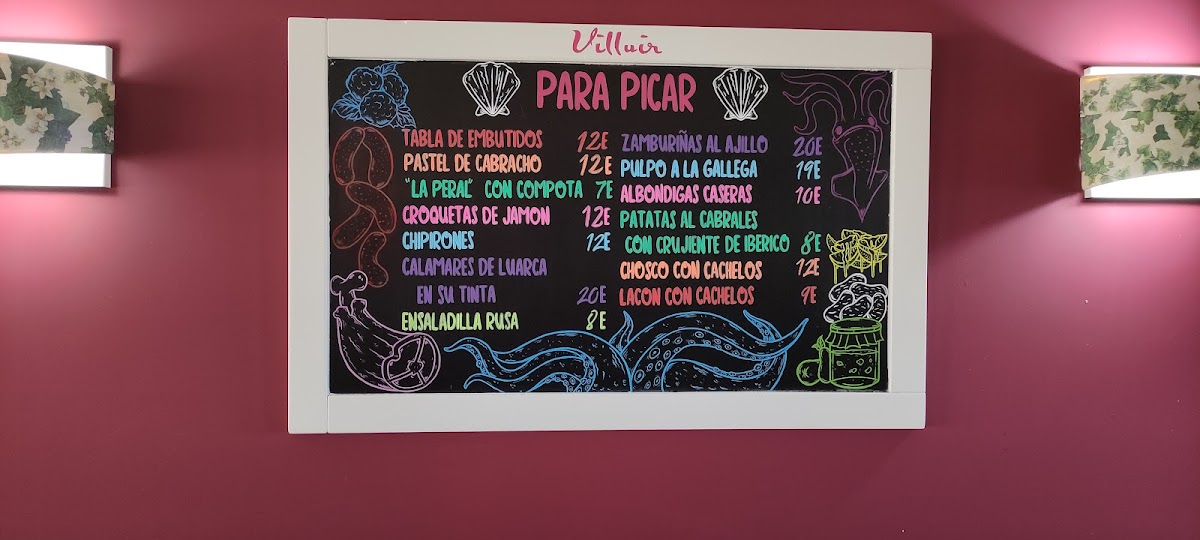 Villuir
PARA PICAR
TABLA DE EMBUTIDOS 12E
PASTEL DE CABRACHO 12E
"LA PERAL" CON COMPOTA 7E
CROQUETAS DE JAMON 12E
CHIPIRONES 12E
CALAMARES DE LUARCA
EN SU TINTA 20E
ENSALADILLA RUSA 8E
ZAMBURIÑAS AL AJILLO 20E
PULPO A LA GALLEGA 19E
ALBONDIGAS CASERAS 10E
PATATAS AL CABRALES
CON CRUJIENTE DE IBERICO 8E
CHOSCO CON CACHELOS 12E
LACON CON CACHELOS 9E